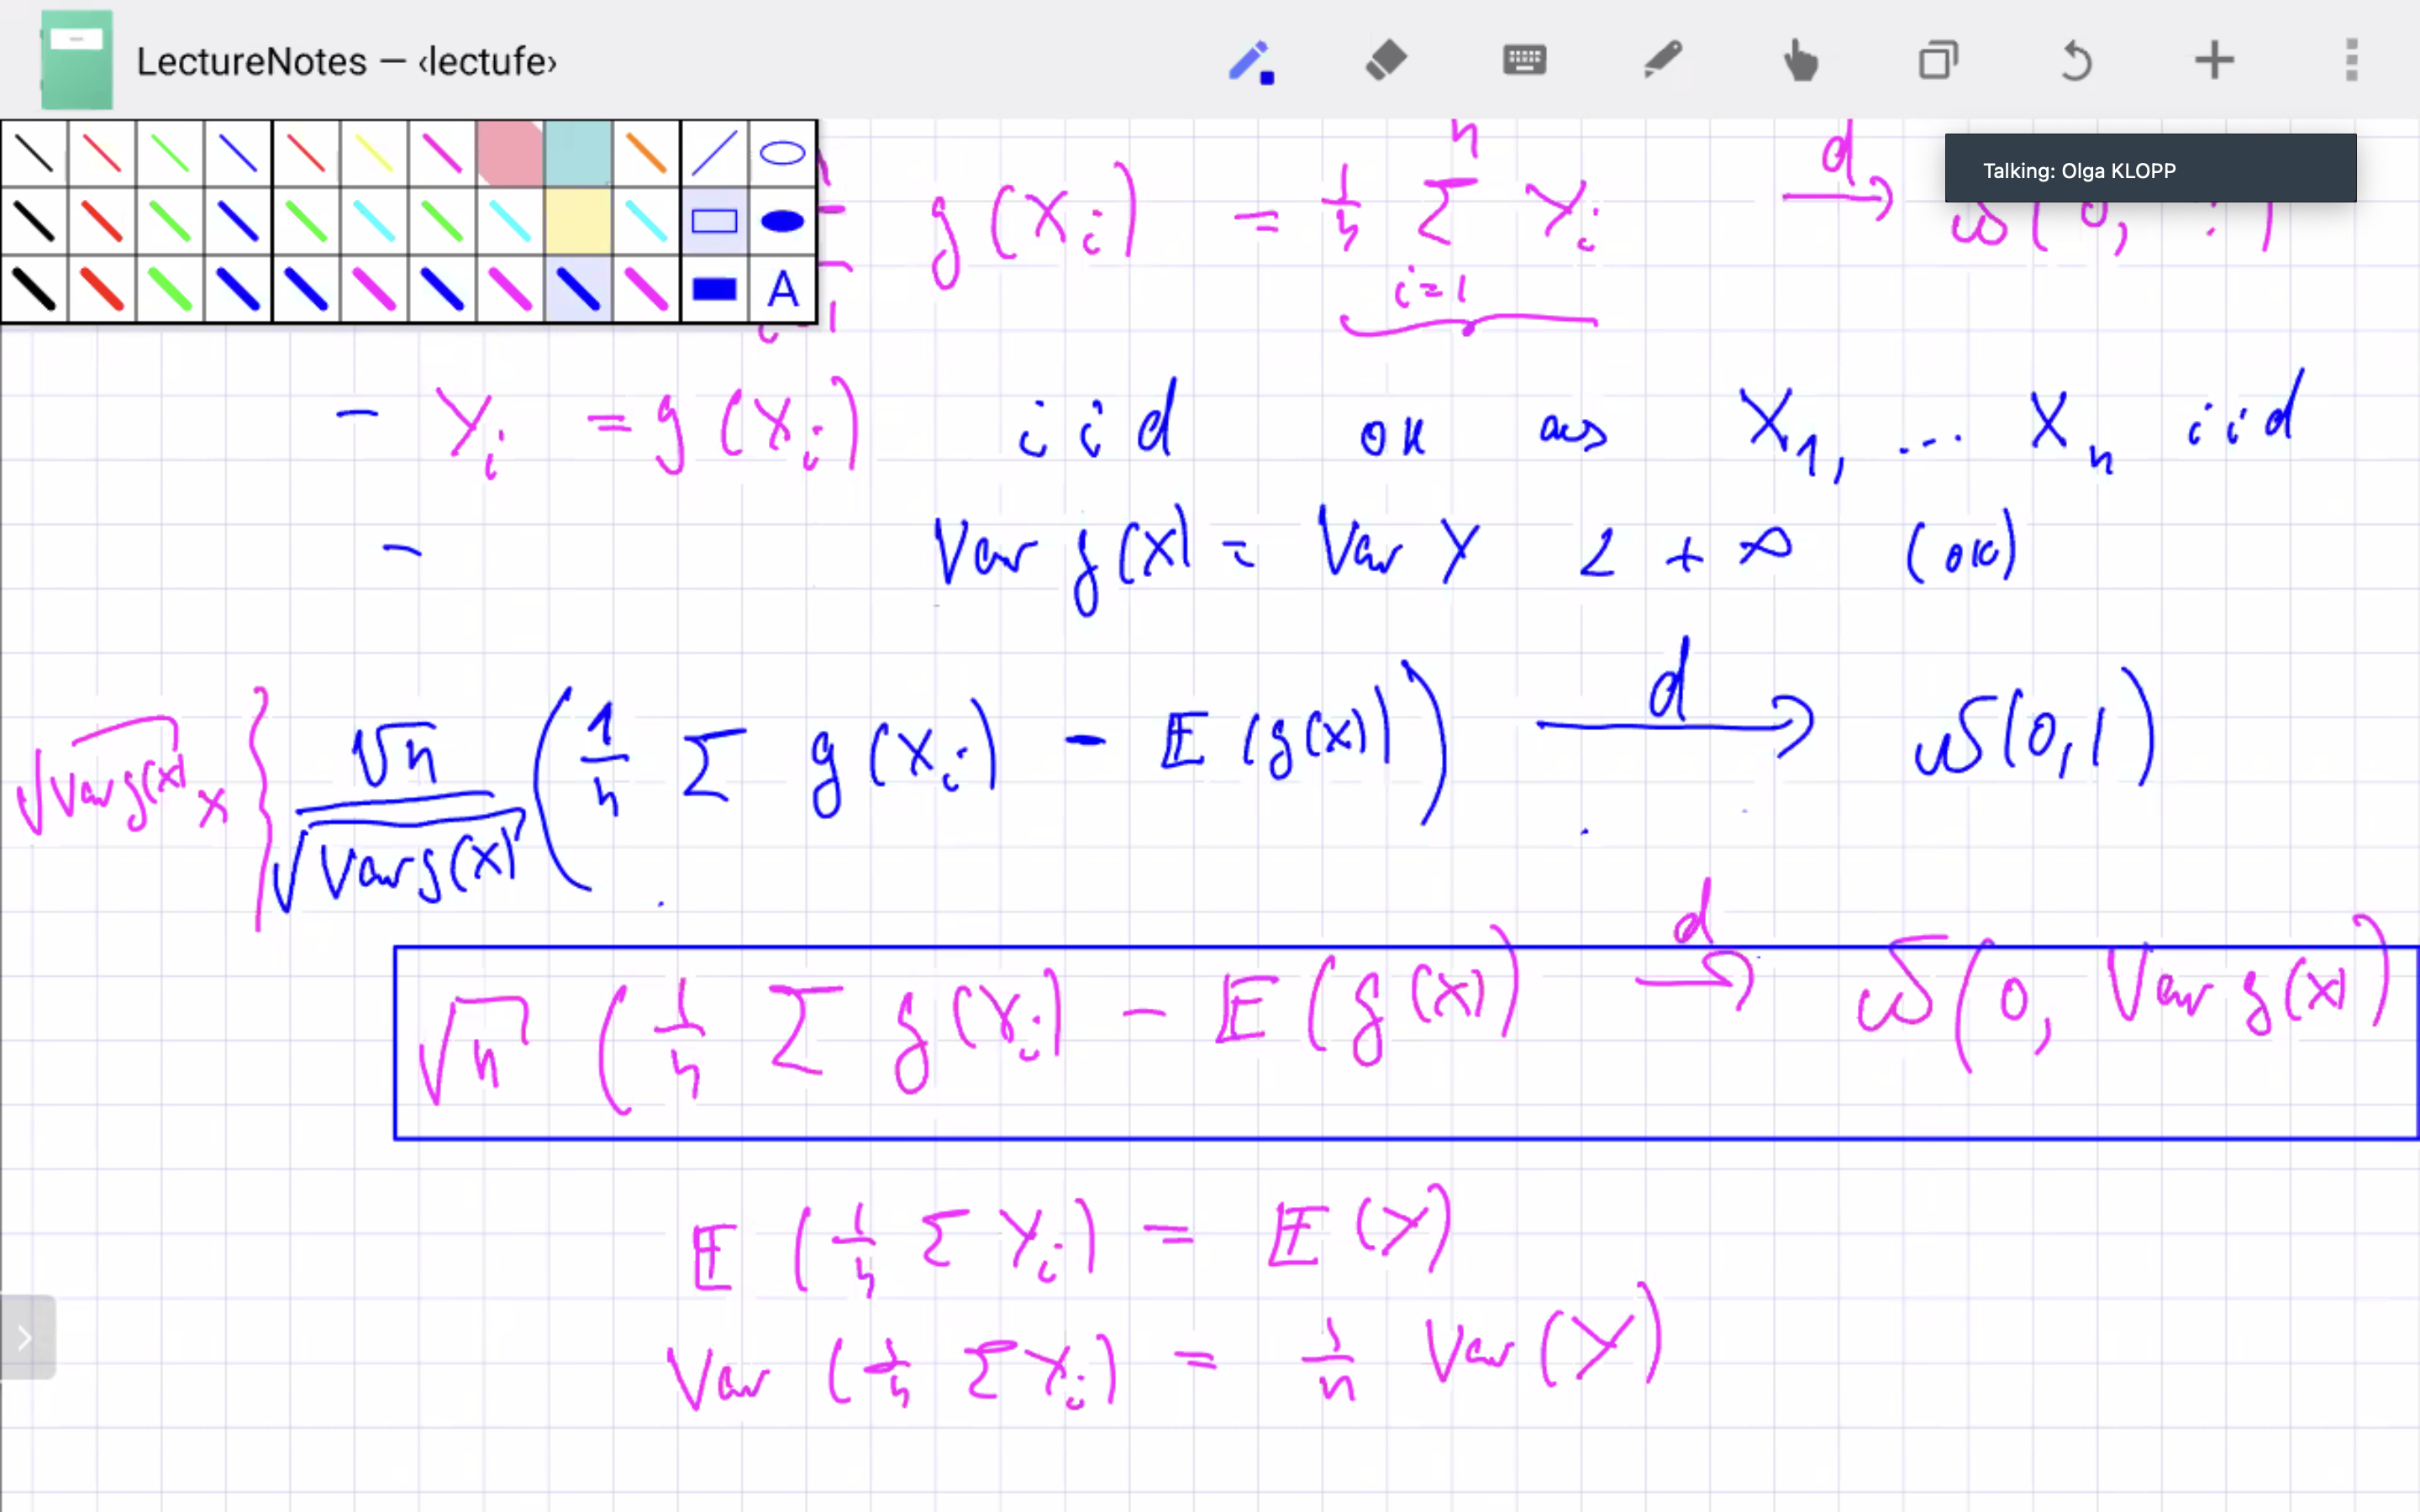 LectureNotes — ‹lectufe›
Talking: Olga KLOPP
A
g(X_i) = 1/n Σ_{i=1}^n Y_i →^d N(0, ?)
- Y_i = g(X_i) iid ok as X_1, ... X_n iid
- Var g(X) = Var Y < +∞ (ok)
√(Var g(X)) × { √n / √(Var g(X)) ( 1/n Σ g(X_i) - E(g(X)) ) →^d N(0,1)
√n ( 1/n Σ g(X_i) - E(g(X) ) →^d N(0, Var g(X))
E ( 1/n Σ Y_i ) = E(Y)
Var ( 1/n Σ Y_i ) = 1/n Var(Y)